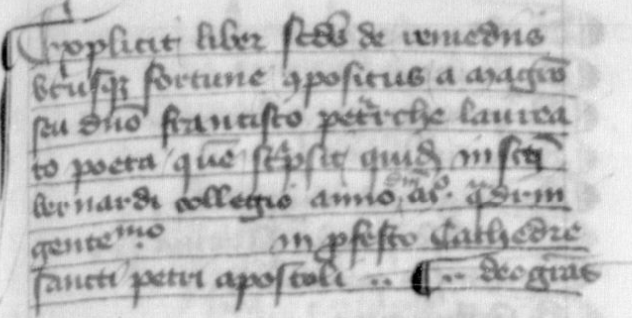 Explicit liber scds de remediis
utriusqꝫ fortune ꝯpositus a magrō
seu dnō francisco petrͣche laurea
to poeta quē scͥpsit quidā in scti
bernardi collegio anno dnī qͣdrin
gentemͦo in ꝓfesto Cathedre
sancti petri apostoli .. ¶ .. deo grās